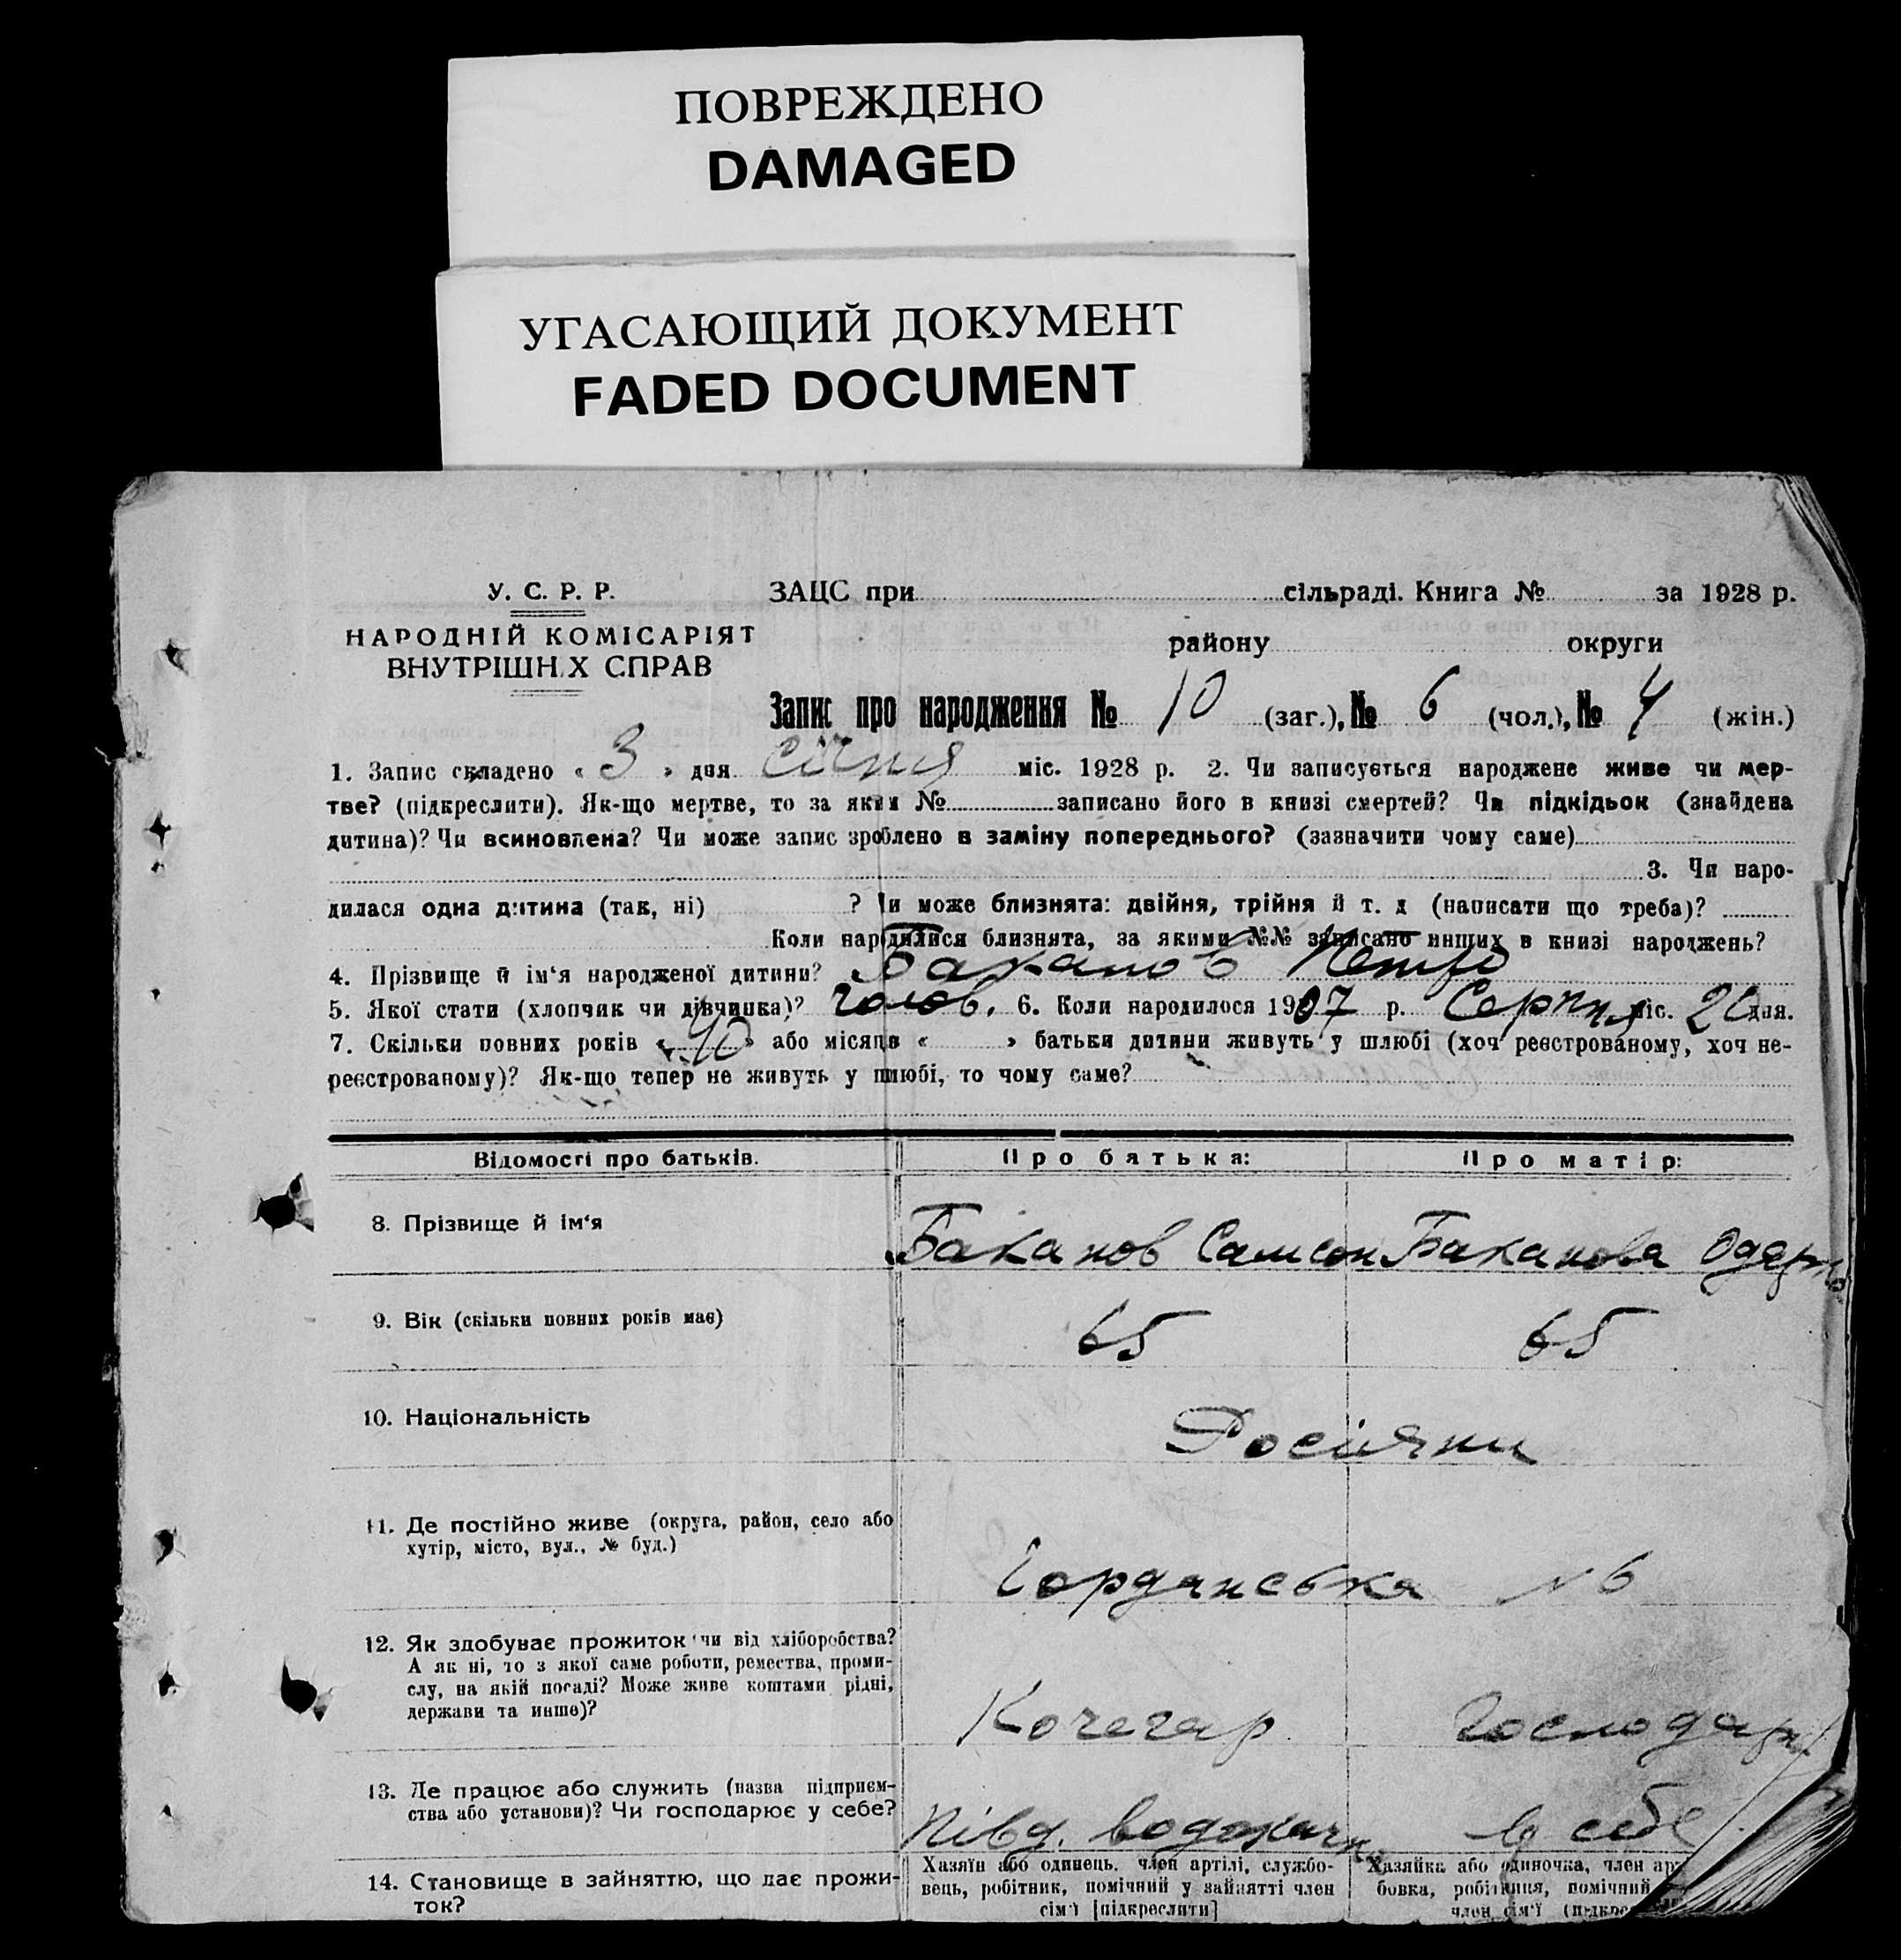 ПОВРЕЖДЕНО
DAMAGED
УГАСАЮЩИЙ ДОКУМЕНТ
FADED DOCUMENT
У. С. Р. Р. ЗАЦС при сільраді. Книга № за 1928 р.
НАРОДНІЙ КОМІСАРІЯТ
ВНУТРІШН.Х СПРАВ
району округи
Запис про народження № 10 (заг.), № 6 (чол.), № 4 (жін.)
1. Запис складено « 3 » дня січня міс. 1928 р. 2. Чи записується народжене живе чи мер-
тве? (підкреслити). Як-що мертве, то за яким № записано його в книзі смертей? Чи підкідьок (знайдена
дитина)? Чи всиновлена? Чи може запис зроблено в заміну попереднього? (зазначити чому саме)
3. Чи наро-
дилася одна дитина (так, ні) ? Чи може близнята: двійня, трійня й т. д (написати що треба)?
Коли народилися близнята, за якими №№ записано инших в книзі народжень?
4. Прізвище й ім‘я народженої дитини? Баканов Петро
5. Якої стати (хлопчик чи дівчинка)? чолов. 6. Коли народилося 1907 р. Серпня міс. 2 дня.
7. Скільки повних років « 40 » або місяців « » батьки дитини живуть у шлюбі (хоч реєстрованому, хоч не-
реєстрованому)? Як-що тепер не живуть у шлюбі, то чому саме?
Відомості про батьків. Про батька: Про матір:
8. Прізвище й ім‘я Баканов Самсон Баканова Одарка
9. Вік (скільки повних років має) 65 65
10. Національність Росіяни
11. Де постійно живе (округа, район, село або
хутір, місто, вул., № буд.)
№ 6
12. Як здобуває прожиток чи від хліборобства?
А як ні, то з якої саме роботи, ремества, проми-
слу, на якій посаді? Може живе коштами рідні,
держави та инше)?
Кочегар Господар
13. Де працює або служить (назва підприєм-
ства або установи)? Чи господарює у себе?
Півд. водокачк у себе
14. Становище в зайняттю, що дає прожи-
ток?
Хазяїн або одинець, член артілі, службо-
вець, робітник, помічний у зайнятті член
сім‘ї [підкреслити]
Хазяйка або одиночка, член ар
бовка, робітниця, помічний
член сім‘ї (підкре